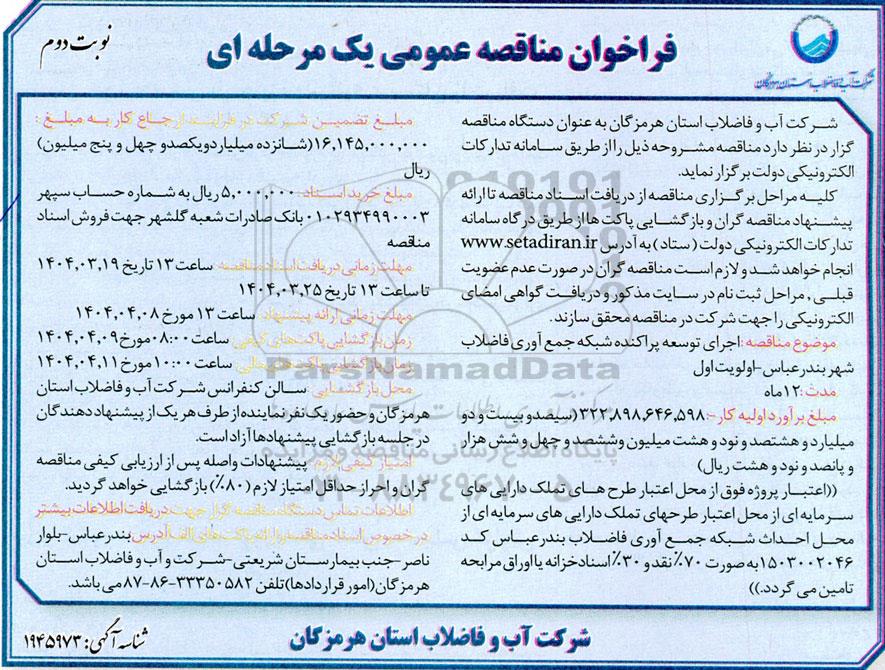 نوبت دوم
فراخوان مناقصه عمومی یک مرحله ای
شرکت آب و فاضلاب استان هرمزگان
شرکت آب و فاضلاب استان هرمزگان به عنوان دستگاه مناقصه
گزار در نظر دارد مناقصه مشروحه ذیل را از طریق سامانه تدارکات
الکترونیکی دولت برگزار نماید.
کلیه مراحل برگزاری مناقصه از دریافت اسناد مناقصه تا ارائه
پیشنهاد مناقصه گران و بازگشایی پاکت ها از طریق درگاه سامانه
تدارکات الکترونیکی دولت (ستاد) به آدرس www.setadiran.ir
انجام خواهد شد و لازم است مناقصه گران در صورت عدم عضویت
قبلی , مراحل ثبت نام در سایت مذکور و دریافت گواهی امضای
الکترونیکی را جهت شرکت در مناقصه محقق سازند.
موضوع مناقصه : اجرای توسعه پراکنده شبکه جمع آوری فاضلاب
شهر بندرعباس-اولویت اول
مدت : ۱۲ماه
مبلغ برآورد اولیه کار :-۳۲۲,۸۹۸,۶۴۶,۵۹۸ (سیصد و بیست و دو
میلیارد و هشتصد و نود و هشت میلیون و ششصد و چهل و شش هزار
و پانصد و نود و هشت ریال)
((اعتبار پروژه فوق از محل اعتبار طرح های تملک دارایی های
سرمایه ای از محل اعتبار طرحهای تملک دارایی های سرمایه ای از
محل احداث شبکه جمع آوری فاضلاب بندرعباس کد
۱۵۰۳۰۰۲۰۴۶ به صورت ۷۰٪ نقد و ۳۰٪ اسناد خزانه یا اوراق مرابحه
تامین می گردد.))
مبلغ تضمین شرکت در فرایند ارجاع کار به مبلغ :
۱۶,۱۴۵,۰۰۰,۰۰۰(شانزده میلیارد و یکصد و چهل و پنج میلیون)
ریال
مبلغ خرید اسناد : ۵,۰۰۰,۰۰۰ ریال به شماره حساب سپهر
۰۱۰۲۹۳۴۹۹۰۰۰۳ بانک صادرات شعبه گلشهر جهت فروش اسناد
مناقصه
مهلت زمانی دریافت اسناد مناقصه : ساعت ۱۳ تاریخ ۱۴۰۴,۰۳,۱۹
تا ساعت ۱۳ تاریخ ۱۴۰۴,۰۳,۲۵
مهلت زمانی ارائه پیشنهاد : ساعت ۱۳ مورخ ۱۴۰۴,۰۴,۰۸
زمان بازگشایی پاکت‌های کیفی : ساعت ۰۸:۰۰ مورخ ۱۴۰۴,۰۴,۰۹
زمان بازگشایی پاکت‌های مالی: ساعت ۱۰:۰۰ مورخ ۱۴۰۴,۰۴,۱۱
محل بازگشایی : سالن کنفرانس شرکت آب و فاضلاب استان
هرمزگان و حضور یک نفر نماینده از طرف هر یک از پیشنهاد دهندگان
در جلسه بازگشایی پیشنهادها آزاد است.
امتیاز کیفی لازم : پیشنهادات واصله پس از ارزیابی کیفی مناقصه
گران و احراز حداقل امتیاز لازم (۸۰٪) بازگشایی خواهد گردید.
اطلاعات تماس دستگاه مناقصه گزار جهت دریافت اطلاعات بیشتر
در خصوص اسناد مناقصه و ارائه پاکت های الف: آدرس بندرعباس-بلوار
ناصر -جنب بیمارستان شریعتی-شرکت و آب و فاضلاب استان
هرمزگان (امور قراردادها) تلفن ۳۳۳۵۰۵۸۲-۸۶-۸۷ می باشد.
ParsNamadData
پایگاه اطلاع رسانی مناقصه و مزایده
۰۲۱-۸۸۳۴۹۶۷۰-۵
شرکت آب و فاضلاب استان هرمزگان
شناسه آگهی: ۱۹۴۵۹۷۳